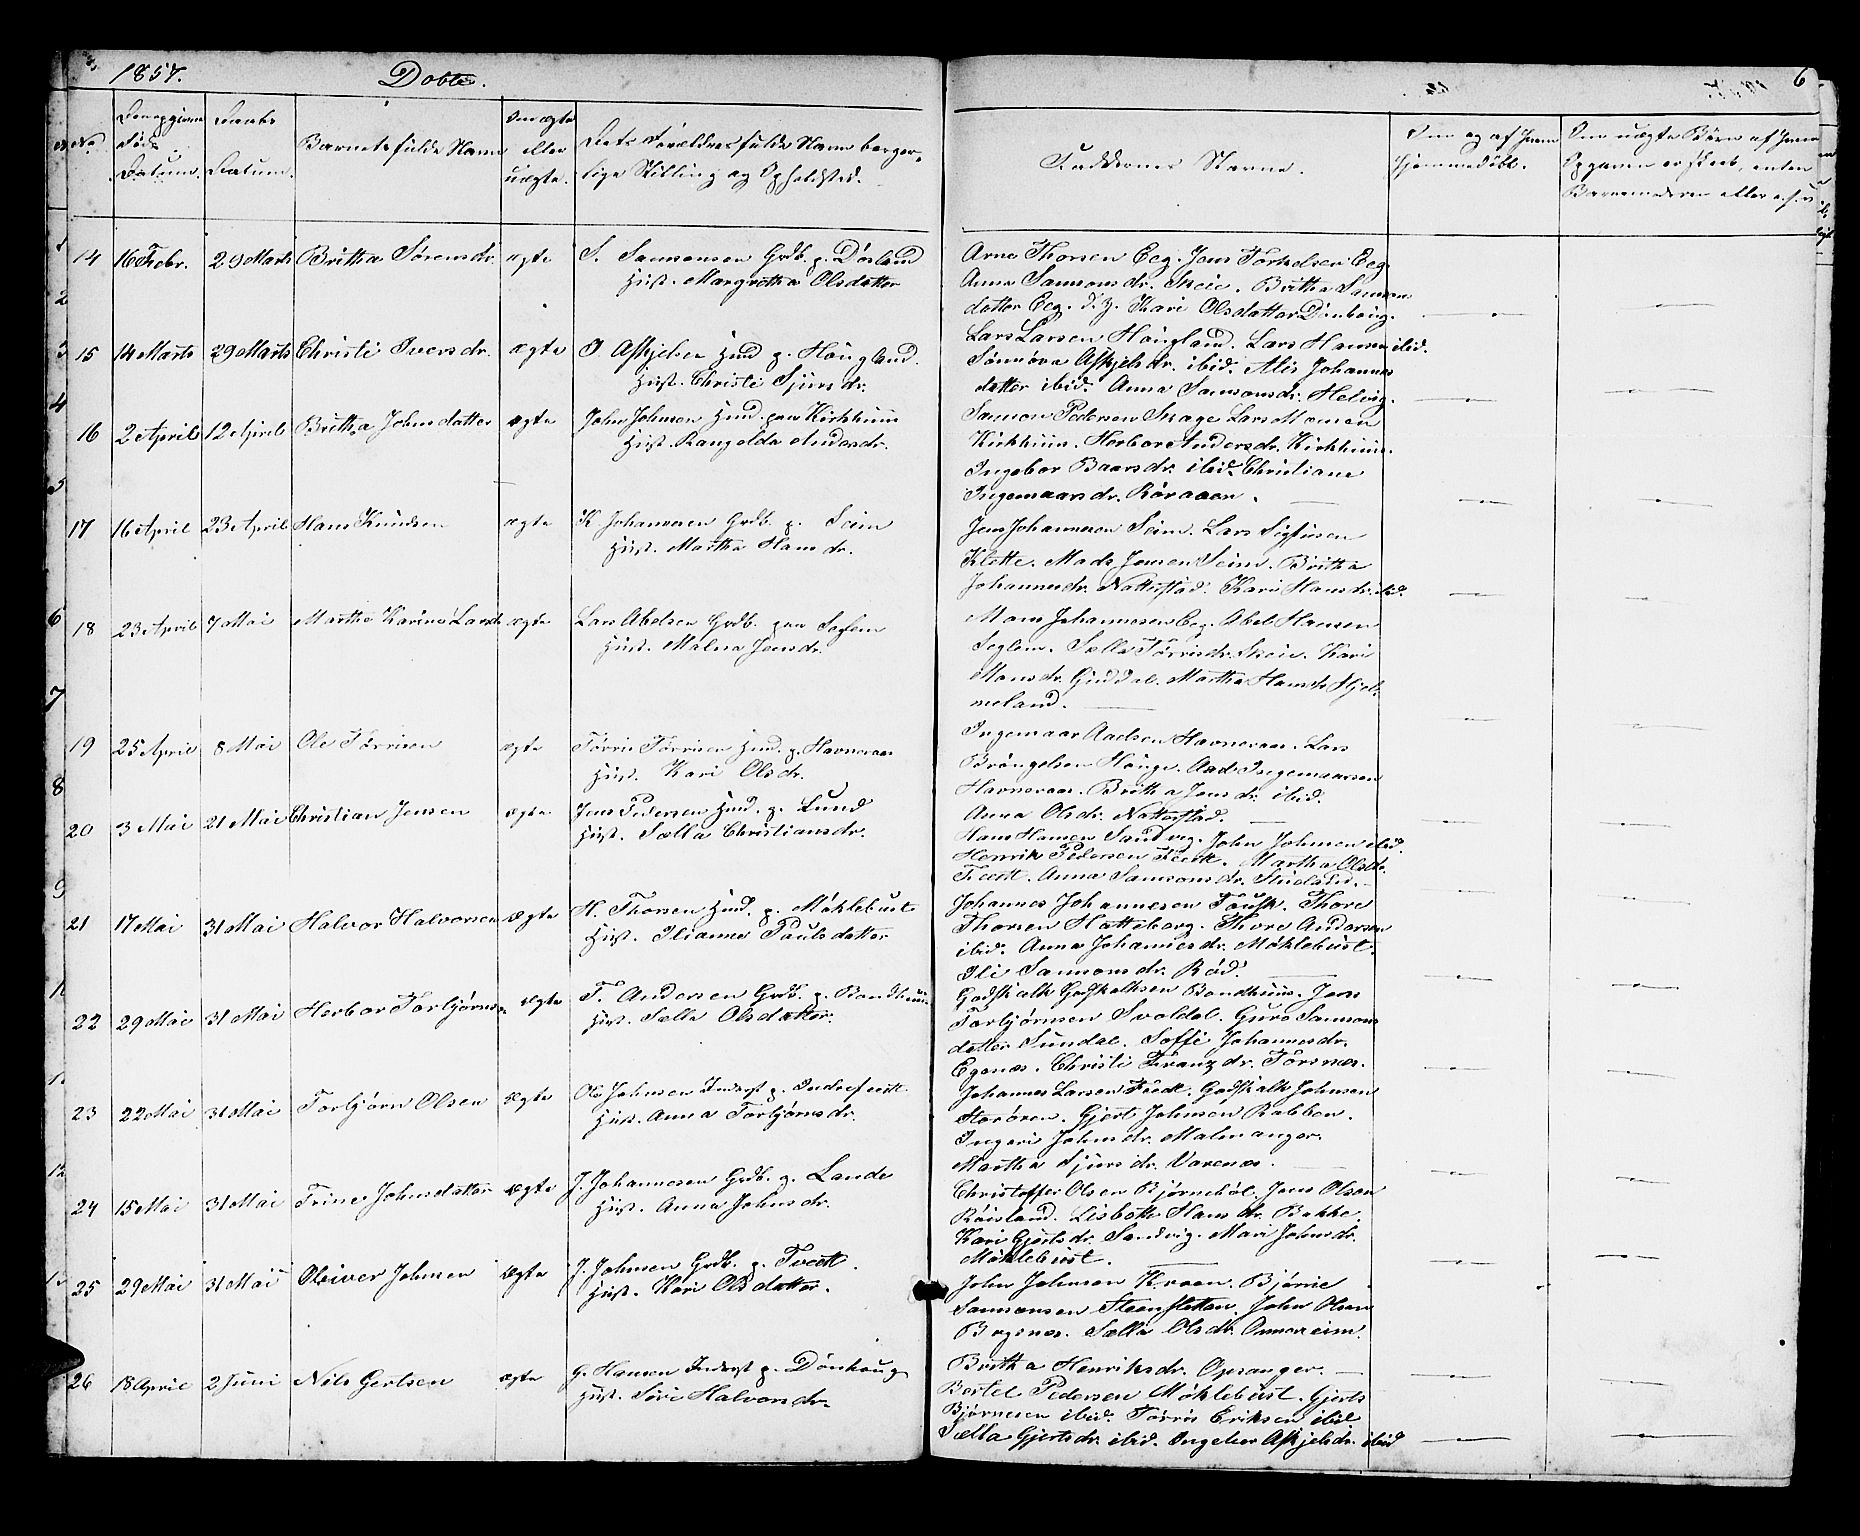 1857. Døbte. 6
No
Den opgivne Føde Datum.
Daabs Datum.
Barnets fulde Navn
Om ægte eller uægte.
Dets Forældres fulde Navn borger-
lige Stilling og Opholdsted.
Faddernes Navne.
Om og af hvem hjemmedøbt.
Om uægte Børn af hvem
Opgaven er skeet, enten
Barnemoderen eller
14 16 Febr. 29 Marts Brittha Sørensdr. ægte S. Samsonsen Grdb. p. Døsland
Hust. Margretha Olsdatter
Arne Thorsen Eeg. Jens Torkelsen Eeg.
Anna Samsonsdr. Skeie. Brittha Samson
datter Eeg. Kari Olsdatter Dønhoug.
15 14 Marts 29 Marts Christi Iversdr. ægte I. Askjelsen Hmd p. Hougland.
Hust. Christi Sjursdr.
Lars Larsen Hougland. Lars Hansen ibid.
Sønnøva Askjelsdr. ibid. Alis Johannes
datter ibid. Anna Samsonsdr. Helvig.
16 2 April 12 April Brittha Johnsdatter ægte John Johnsen Hmd. paa Kirkhuus
Hust. Rangelda Andersdr.
Samson Pedersen Skage Lars Monsen
Kirkhuus. Herbor Andersdr. Kirkhuus.
Ingebor Baarsdr. ibid. Christiane
Ingemaarsdr. Røraaen.
17 16 April 23 April Hans Knudsen ægte K Johannesen Grdb. p. Seim
Hust. Martha Hansdr.
Jens Johannesen Seim. Lars Sigfusen
Klette. Mads Jensen Seim. Brittha
Johannesdr. Natterstad. Kari Hansdr. ibid.
18 23 April 7 Mai Martha Karine Larsdr ægte Lars Abelsen Grdb. paa Seglem
Hust. Malena Jensdr.
Mons Johannesen Eeg. Abel Hansen
Seglem. Sælla Tørrisdr. Skeie. Kari
Monsdr. Guddal. Martha Hansdr Hjel-
meland.
19 25 April 8 Mai Ole Tørrisen ægte Tørris Tørrisen Hmd. p. Havneraas
Hust. Kari Olsdr.
Ingemaar Aadsen Havneraas. Lars
Brøngelsen Houge. Aad Ingemaarsen
Havneraas. Brittha Jensdr. ibid.
Anna Olsdr. Natterstad.
20 3 Mai 21 Mai Christian Jensen ægte Jens Pedersen Hmd. p. Lund
Hust. Sælla Christiansdr.
Hans Hansen Sandvig. John Johnsen ibid.
Henrik Pedersen Tveit. Martha Olsdr.
Tveit. Anna Samsonsdr.
21 17 Mai 31 Mai Halvor Halvorsen ægte H. Thorsen Hmd. p. Møklebust
Hust. Ilianna Paulsdatter
Johannes Johannesen Fousk. Thore
Thorsen Hatteberg. Thore Andersen
ibid. Anna Johannesdr. Møklebust.
Ili Samsonsdr. Rød.
22 29 Mai 31 Mai Herbor Torbjørns ægte T. Andersen Grdb. p. Bondhuus.
Hust. Sælla Olsdatter.
Godskalk Godskalksen Bondhuus. Jens
Torbjørnsen Svoldal. Guro Samsons
datter Sundal. Soffi Johannesdr.
Egenes. Christi Franzdr. Torsnes.
23 22 Mai 31 Mai Torbjørn Olsen ægte Ole Johnsen Inderst p. Indretveit
Hust. Anna Torbjørnsdr.
Johannes Larsen Tveit. Godskalk Johnsen
Storøren. Gjert Johnsen Rabben.
Ingeri Johnsdr. Malmanger.
Martha Sjursdr. Varenes.
24 15 Mai 31 Mai Trine Johnsdatter ægte J. Johannesen Grdb. p. Lande
Hust. Anna Johnsdr.
Christoffer Olsen Bjørnehøl. Jens Olsen
Røisland. Lisbeth Hansdr. Bakke.
Kari Gjertsdr. Sandvig. Mari Johnsdr.
Møklebust.
25 29 Mai 31 Mai Oleiver Johnsen ægte J. Johnsen Grdb. p. Tveit.
Hust. Kari Olsdatter.
John Johnsen Kraen. Bjørne
Samsonsen Steensletten. John Olsen
Bogsnes. Sælla Olsdr.
Brittha Henriksdr. Opsanger.
26 18 April 2 Juni Nils Gertsen ægte G. Hansen Inderst p. Dønhoug
Hust. Siri Halvorsdr.
Bertel Pedersen Møklebust. Gjerts
Bjørnesen ibid. Tørris Eriksen ibid
Sælla Gjertsdr. ibid. Ingebor Askjelsdr. ibid